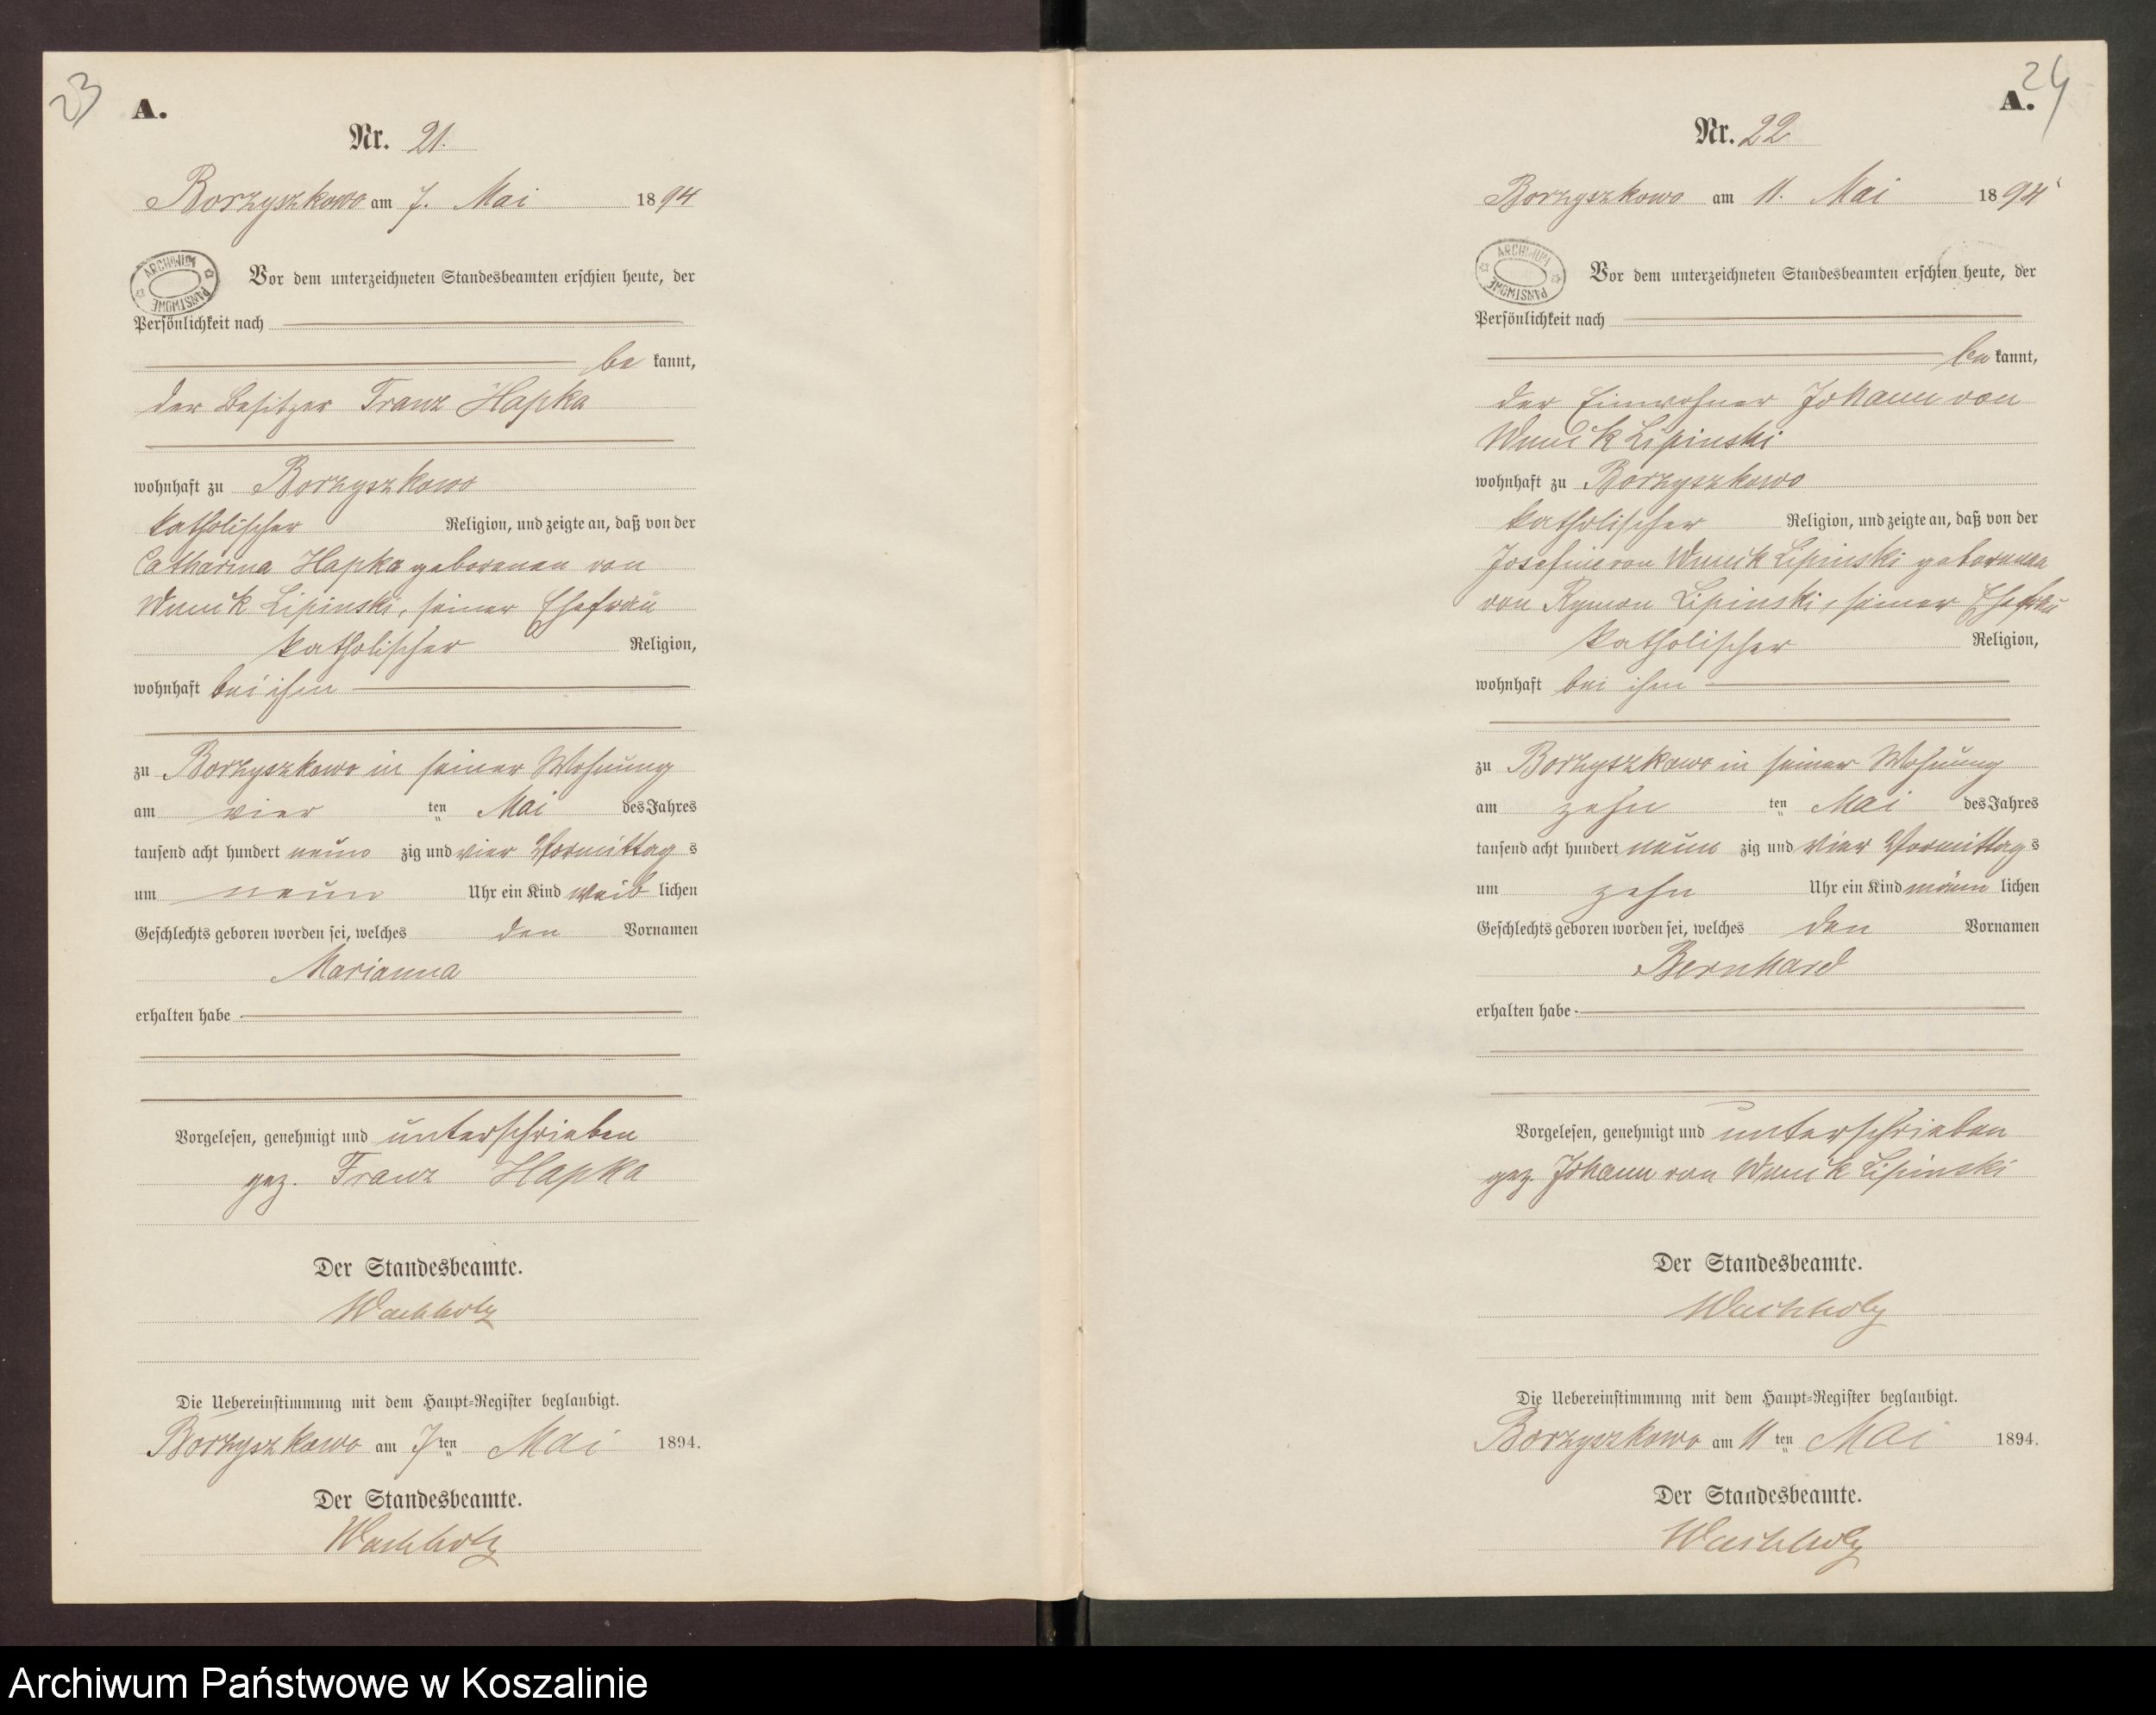 23
A.
Nr. 21.
Borzyszkowo am 7. Mai 1894
ARCHIWUM PAŃSTWOWE
Vor dem unterzeichneten Standesbeamten erschien heute, der
Persönlichkeit nach
be kannt,
der Besitzer Franz Hapka
wohnhaft zu Borzyszkowo
katholischer Religion, und zeigte an, daß von der
Catharina Hapka geborenen von
Wnuck Lipinski, seiner Ehefrau
katholischer Religion,
wohnhaft bei ihm
zu Borzyszkowo in seiner Wohnung
am vier ten Mai des Jahres
tausend acht hundert neun zig und vier Vormittag s
um neun Uhr ein Kind weib lichen
Geschlechts geboren worden sei, welches den Vornamen
Marianna
erhalten habe
Vorgelesen, genehmigt und unterschrieben
gez. Franz Hapka
Der Standesbeamte.
Wachholz
Die Uebereinstimmung mit dem Haupt-Register beglaubigt.
Borzyszkowo am 7 ten Mai 1894.
Der Standesbeamte.
Wachholz
24
A.
Nr. 22
Borzyszkowo am 11. Mai 1894
ARCHIWUM PAŃSTWOWE
Vor dem unterzeichneten Standesbeamten erschien heute, der
Persönlichkeit nach
be kannt,
der Einwohner Johann von
Wnuck Lipinski
wohnhaft zu Borzyszkowo
katholischer Religion, und zeigte an, daß von der
Josefine von Wnuck Lipinski geborenen
von Rymon Lipinski, seiner Ehefrau
katholischer Religion,
wohnhaft bei ihm
zu Borzyszkowo in seiner Wohnung
am zehn ten Mai des Jahres
tausend acht hundert neun zig und vier Vormittag s
um zehn Uhr ein Kind männ lichen
Geschlechts geboren worden sei, welches den Vornamen
Bernhard
erhalten habe
Vorgelesen, genehmigt und unterschrieben
gez. Johann von Wnuck Lipinski
Der Standesbeamte.
Wachholz
Die Uebereinstimmung mit dem Haupt-Register beglaubigt.
Borzyszkowo am 11 ten Mai 1894.
Der Standesbeamte.
Wachholz
Archiwum Państwowe w Koszalinie